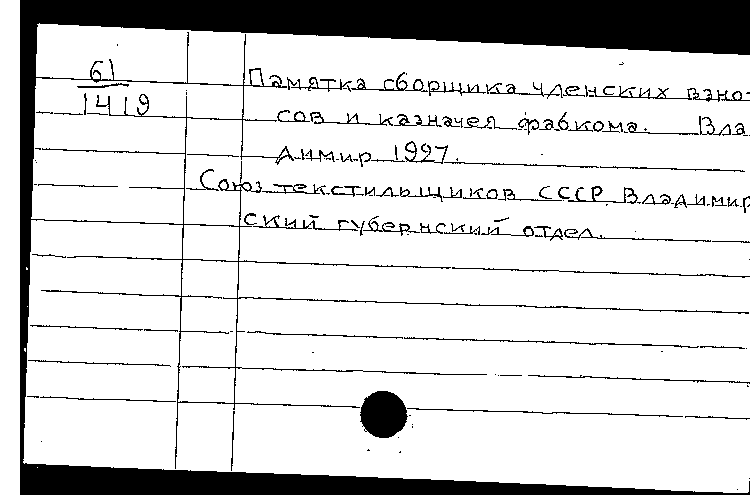 61
1419
Памятка сборщика членских взно-
сов и казначея фабкома. Вла
димир 1927.
Союз текстильщиков СССР. Владимир
ский губернский отдел.